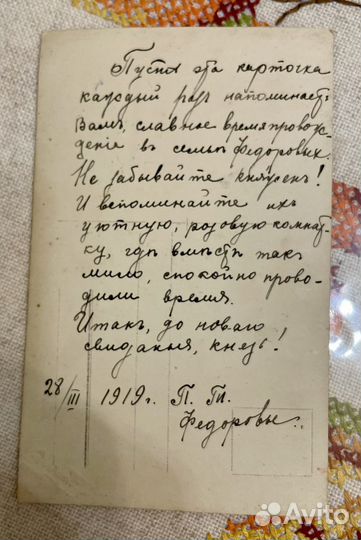 Пусть эта карточка
каждый разъ напоминаетъ
Вамъ, славное времяпровож-
денiе въ семьѣ Федоровыхъ.
Не забывайте князсек!
И вспоминайте ихъ
уютную, розовую комнат-
ку, гдѣ вмѣстѣ такъ
мило, спокойно прово-
дили время.
Итакъ, до новаго
свиданья, князь!
28/III 1919 г. П. Ти.
Федоровы.
Avito